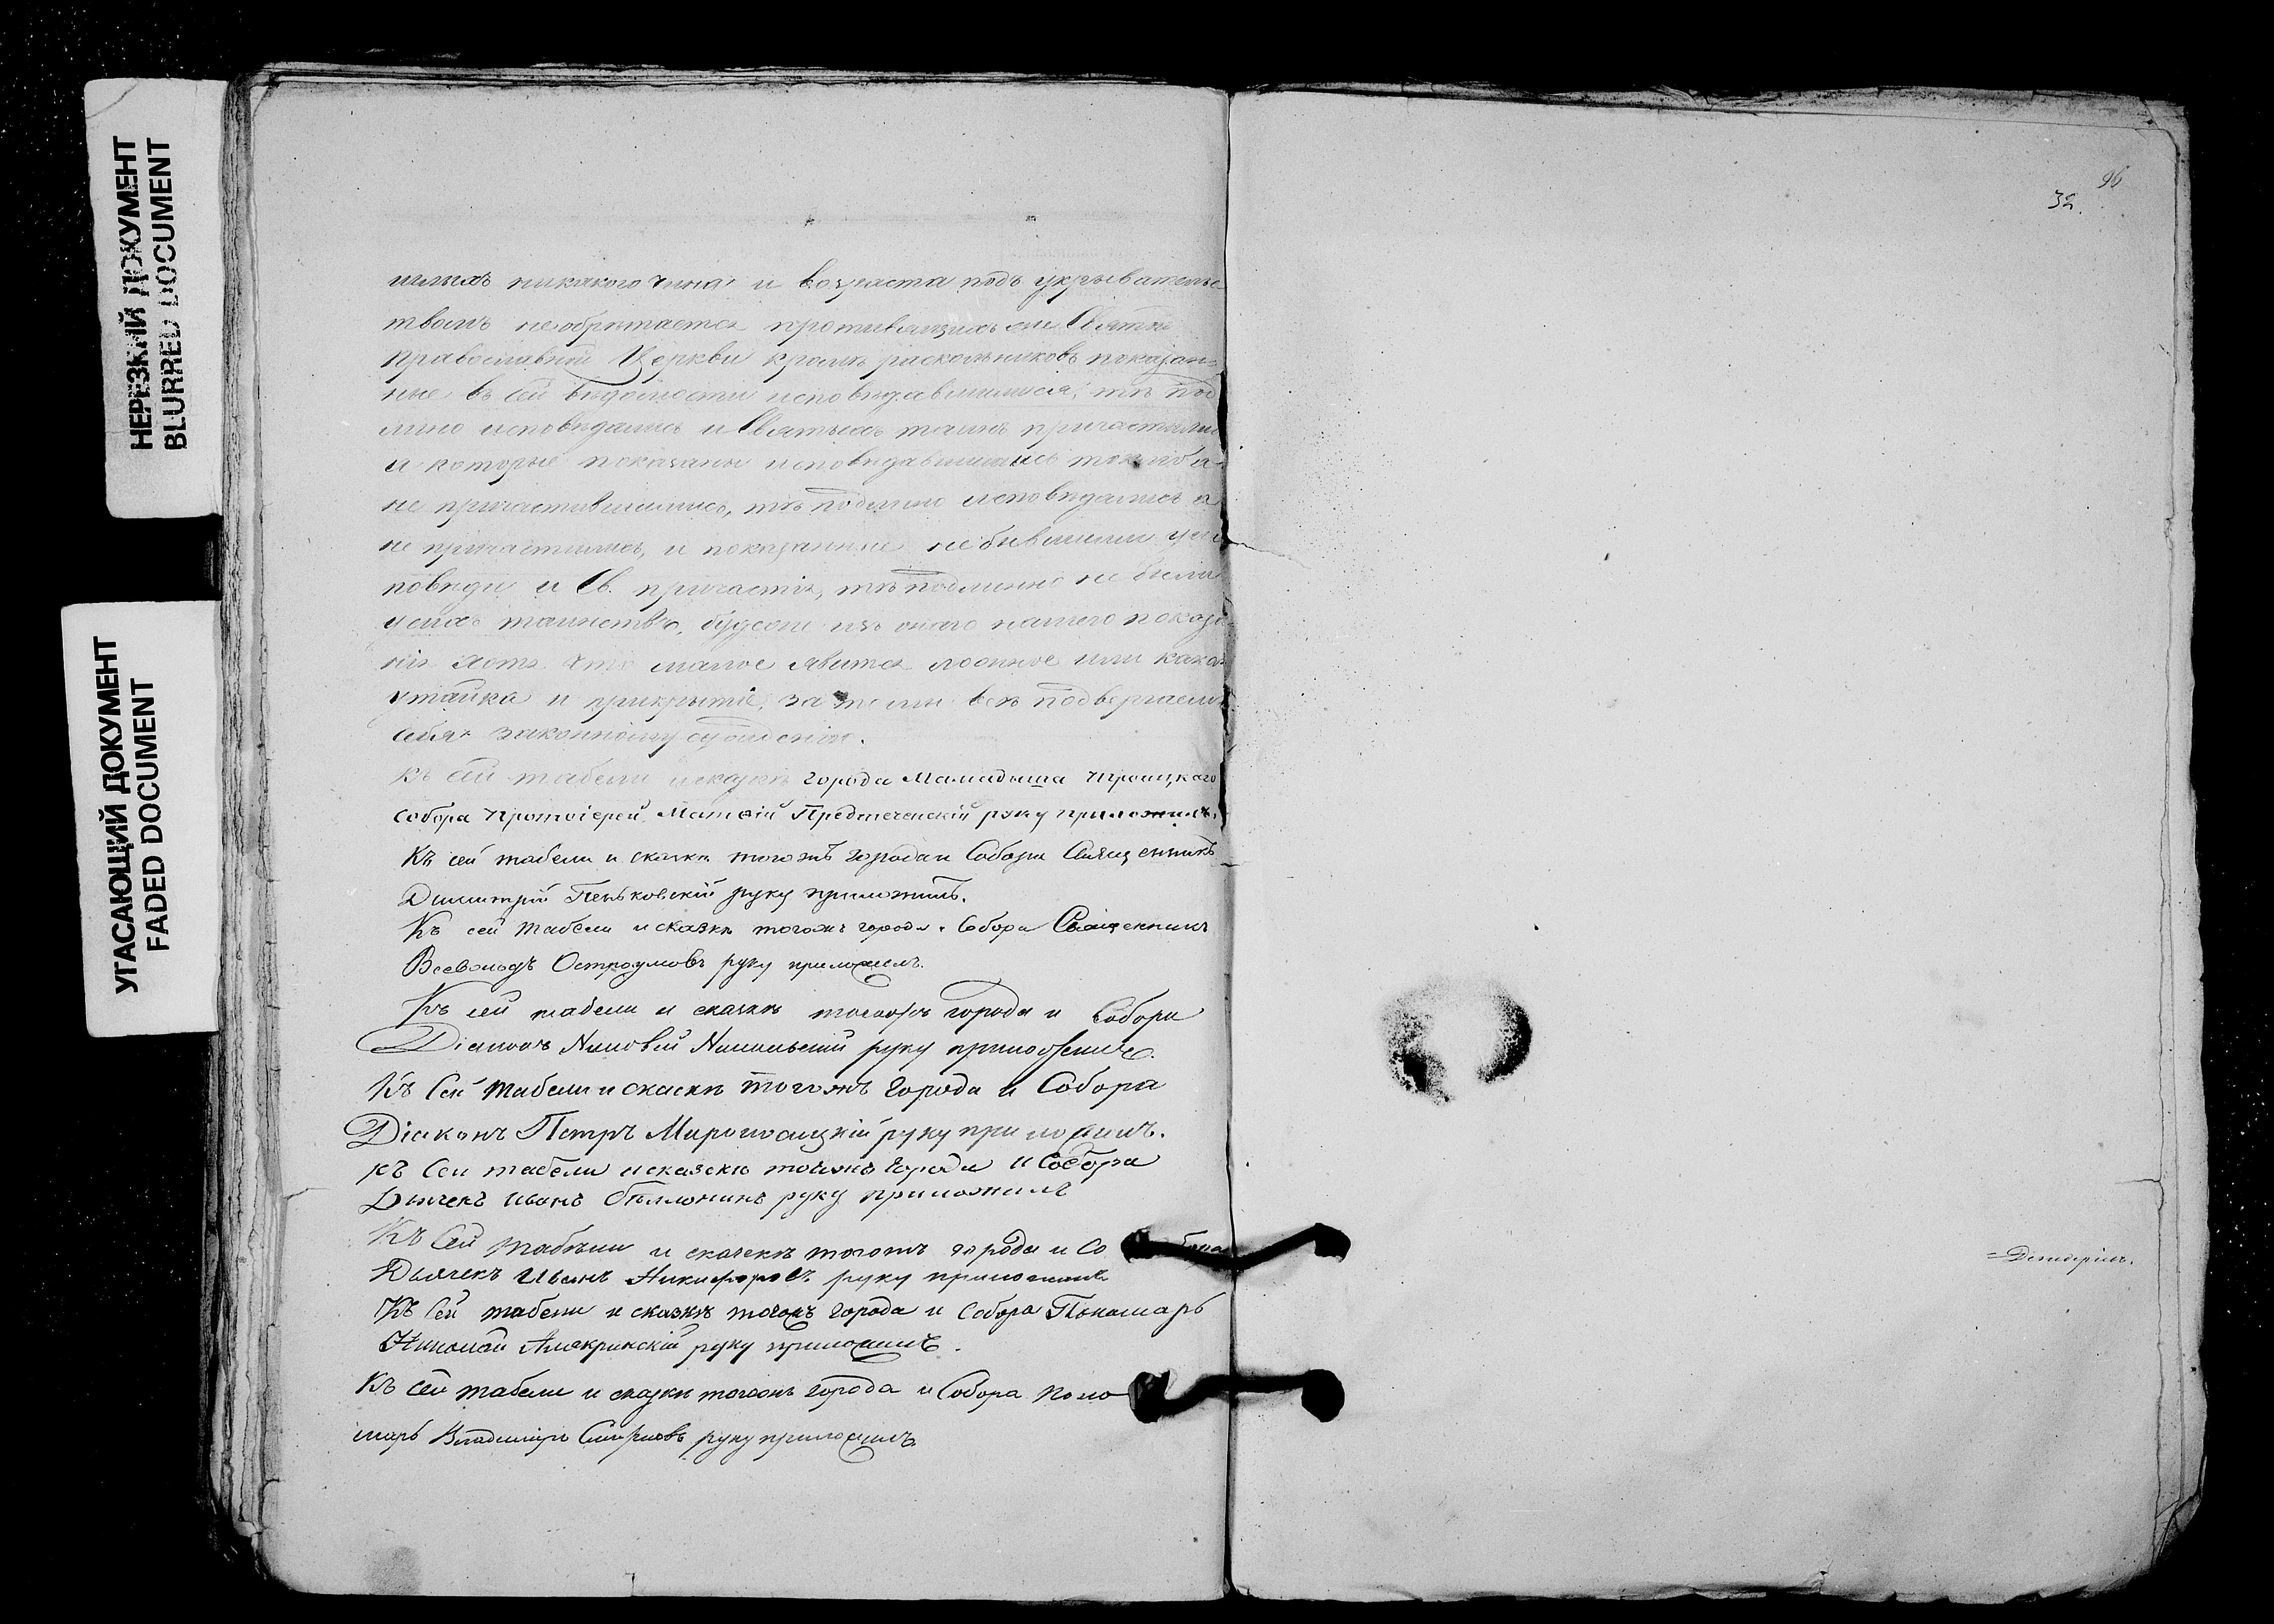 НЕРЕЗКИЙ ДОКУМЕНТ
BLURRED DOCUMENT
УГАСАЮЩИЙ ДОКУМЕНТ
FADED DOCUMENT
никакого чина и возраста подъ укрыватель
твомъ необрѣтается Святой
православной Церкви кромѣ раскольниковъ показан=
ные въ сей вѣдомости исповѣдавшимися, тѣ под
линно исповѣдались и Святыхъ таинъ причастились
и которые показаны исповѣдавшимись токмо а
не причастившимись, тѣ подлинно исповѣдались а
не причастились, и показанные небывшими у ис
повѣди и Св. причастія, тѣ подлинно не были
у сихъ таинствъ, будеже изъ онаго нашего показа
нія хотя что малое явится ложное или какая
утайка и прикрытіе, за то мы всѣ подвергаемъ
себя законному сужденію.
Къ сей табели и сказкѣ города Мамадыша Троицкаго
собора Протоіерей Матвій Предтеченскій руку приложилъ.
Къ сей табели и сказкѣ тогожъ города и Собора Священникъ
Димитрій Пеньковскій руку приложилъ.
Къ сей табели и сказкѣ тогожъ города и Собора Священникъ
Всеволодъ Остроумовъ руку приложилъ.
Къ сей табели и сказкѣ тогожъ города и Собора
Діаконъ Никольскій руку приложилъ.
Къ Сей табели и скаскѣ тогожъ города и Собора
Діаконъ Петръ руку приложилъ.
Къ Сей табели и скаскѣ тогожъ города и Собора
Дьячекъ Иванъ руку приложилъ
Къ Сей табѣли и тогожъ города и Собора
Дьячекъ Иванъ Никифоровъ руку приложилъ
Къ Сей табели и сказкѣ тогожъ города и Собора Понамарь
Николай Алекринскій руку приложилъ.
Къ сей табели и сказкѣ тогожъ города и Собора поно
марь Владимиръ Смирновъ руку приложилъ.
96
32.